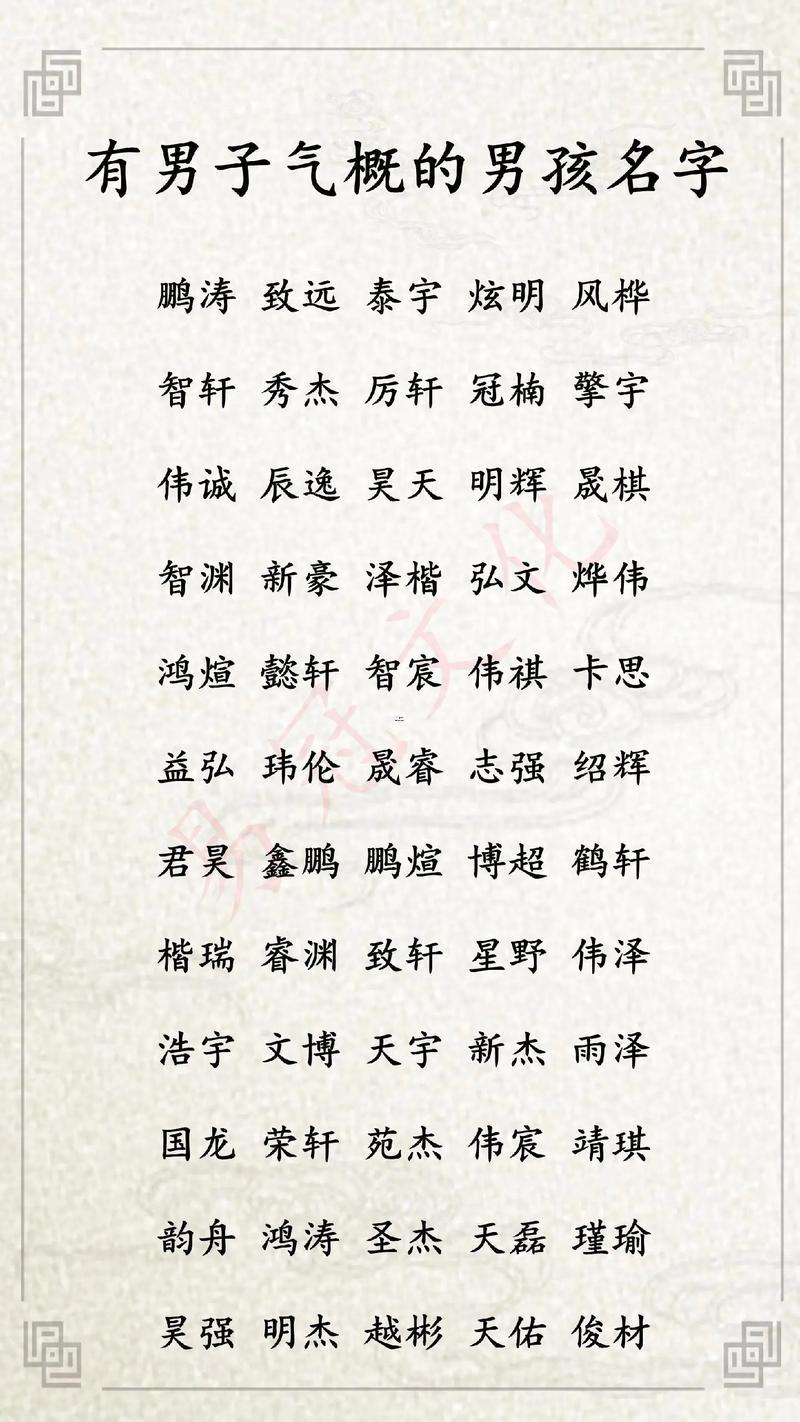 有男子气概的男孩名字
鹏涛 致远 泰宇 炫明 风桦
智轩 秀杰 厉轩 冠楠 擎宇
伟诚 辰逸 昊天 明辉 晟棋
智渊 新豪 泽楷 弘文 烨伟
鸿煊 懿轩 智宸 伟祺 卡思
益弘 玮伦 晟睿 志强 绍辉
君昊 鑫鹏 鹏煊 博超 鹤轩
楷瑞 睿渊 致轩 星野 伟泽
浩宇 文博 天宇 新杰 雨泽
国龙 荣轩 苑杰 伟宸 靖琪
韵舟 鸿涛 圣杰 天磊 瑾瑜
昊强 明杰 越彬 天佑 俊材
易冠文化